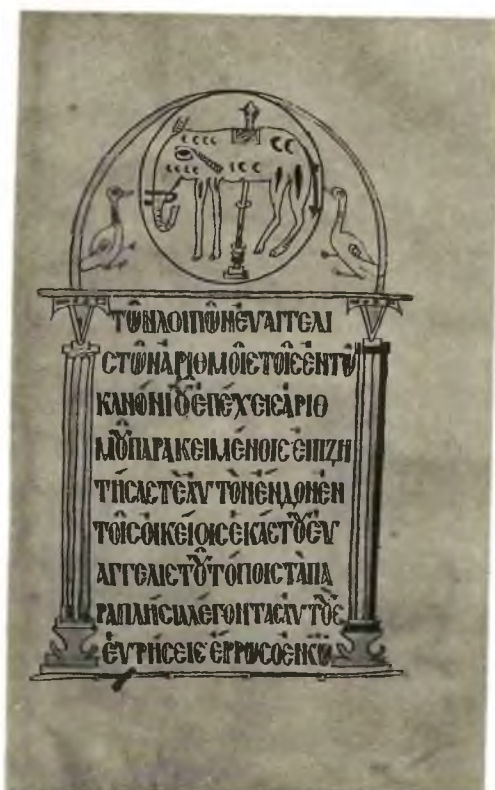 ΤѠΝΛΟΙΠѠΝΕΥΑΓΓΕΛΙ
CΤѠΝΑΡΙΘΜΟΙCΤΟΙCΕΝΤѠ
ΚΑΝΟΝΙΟΥ̃ΕΠΕΧΕΙCΑΡΙΘ
ΜΟΥ̃ΠΑΡΑΚΕΙΜΕΝΟΙCΕΠΙΖΗ
ΤΗCΑCΤΕΑΥΤΟΝΕΝΔΟΝΕΝ
ΤΟΙCΟΙΚΕΙΟΙCΕΚΑCΤΟΥΕΥ
ΑΓΓΕΛΙCΤΟΥΤΟΠΟΙCΤΑΠΑ
ΡΑΠΛΗCΙΑΛΕΓΟΝΤΑCΑΥΤΟΥC
ΕΥΡΗCΕΙC ΕΡΡѠCΟΕΝΚѠ